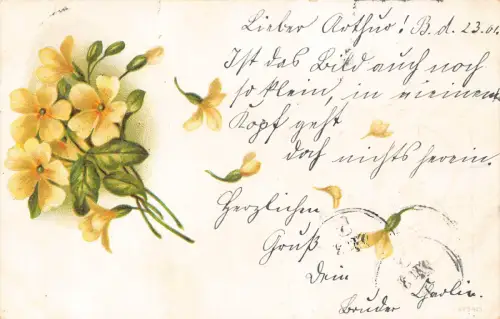 Lieber Arthur! B. d. 23.01.
Ist das Bild auch noch
so klein, in meinen
Kopf geht
doch nichts herein.
Herzlichen
Gruß
Dein
Bruder Charlie.